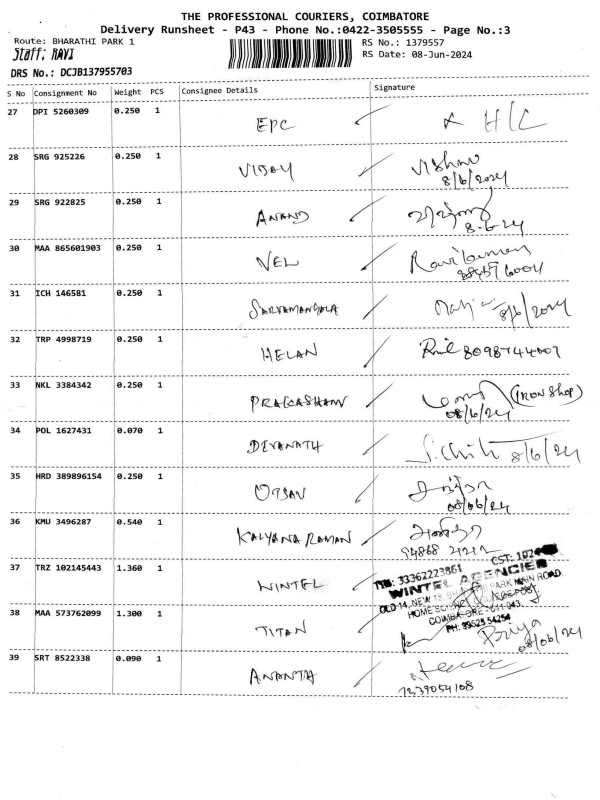 THE PROFESSIONAL COURIERS, COIMBATORE
Delivery Runsheet - P43 - Phone No.:0422-3505555 - Page No.:3
Route: BHARATHI PARK 1 RS No.: 1379557
Staff: RAVI RS Date: 08-Jun-2024
DRS No.: DCJB137955703
S No Consignment No Weight PCS Consignee Details Signature
27 DPI 5260309 0.250 1 EPC H/C
28 SRG 925226 0.250 1 VIJAY Vishnu
8/6/2024
29 SRG 922825 0.250 1 ANAND
8-6-24
30 MAA 865601903 0.250 1 VEL
31 ICH 146581 0.250 1 SARVAMANGALA 8/6/2024
32 TRP 4998719 0.250 1 HELAN
33 NKL 3384342 0.250 1 PRAKASHAM (IRON Shop)
08/6/24
34 POL 1627431 0.070 1 DEVANATH 8/6/24
35 HRD 389896154 0.250 1
08/06/24
36 KMU 3496287 0.540 1 KALYANA RAMAN
37 TRZ 102145443 1.360 1 WINTEL
TIN: 33362223861 CST:
WINTEL AGENCIES
PARK MAIN ROAD
COIMBATORE - 641 043.
38 MAA 573762099 1.300 1 TITAN Priya
08/06/24
39 SRT 8522338 0.090 1 ANANTA